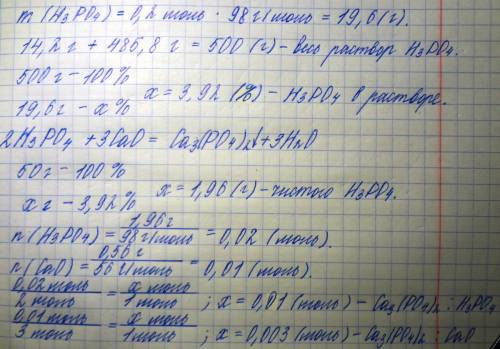 m(H₃PO₄) = 0,2 моль · 98 г/моль = 19,6 (г).
14,2 г + 485,8 г = 500 (г) – весь раствор H₃PO₄.
500 г – 100 %
19,6 г – x %
x = 3,92 (%) – H₃PO₄ в растворе.
2H₃PO₄ + 3CaO = Ca₃(PO₄)₂↓ + 3H₂O
50 г – 100 %
x г – 3,92 %
x = 1,96 (г) – чистого H₃PO₄.
n(H₃PO₄) = 1,96 г / 98 г/моль = 0,02 (моль).
n(CaO) = 0,56 г / 56 г/моль = 0,01 (моль).
0,02 моль / 2 моль = x моль / 1 моль ; x = 0,01 (моль) – Ca₃(PO₄)₂ : H₃PO₄
0,01 моль / 3 моль = x моль / 1 моль ; x = 0,003 (моль) – Ca₃(PO₄)₂ : CaO